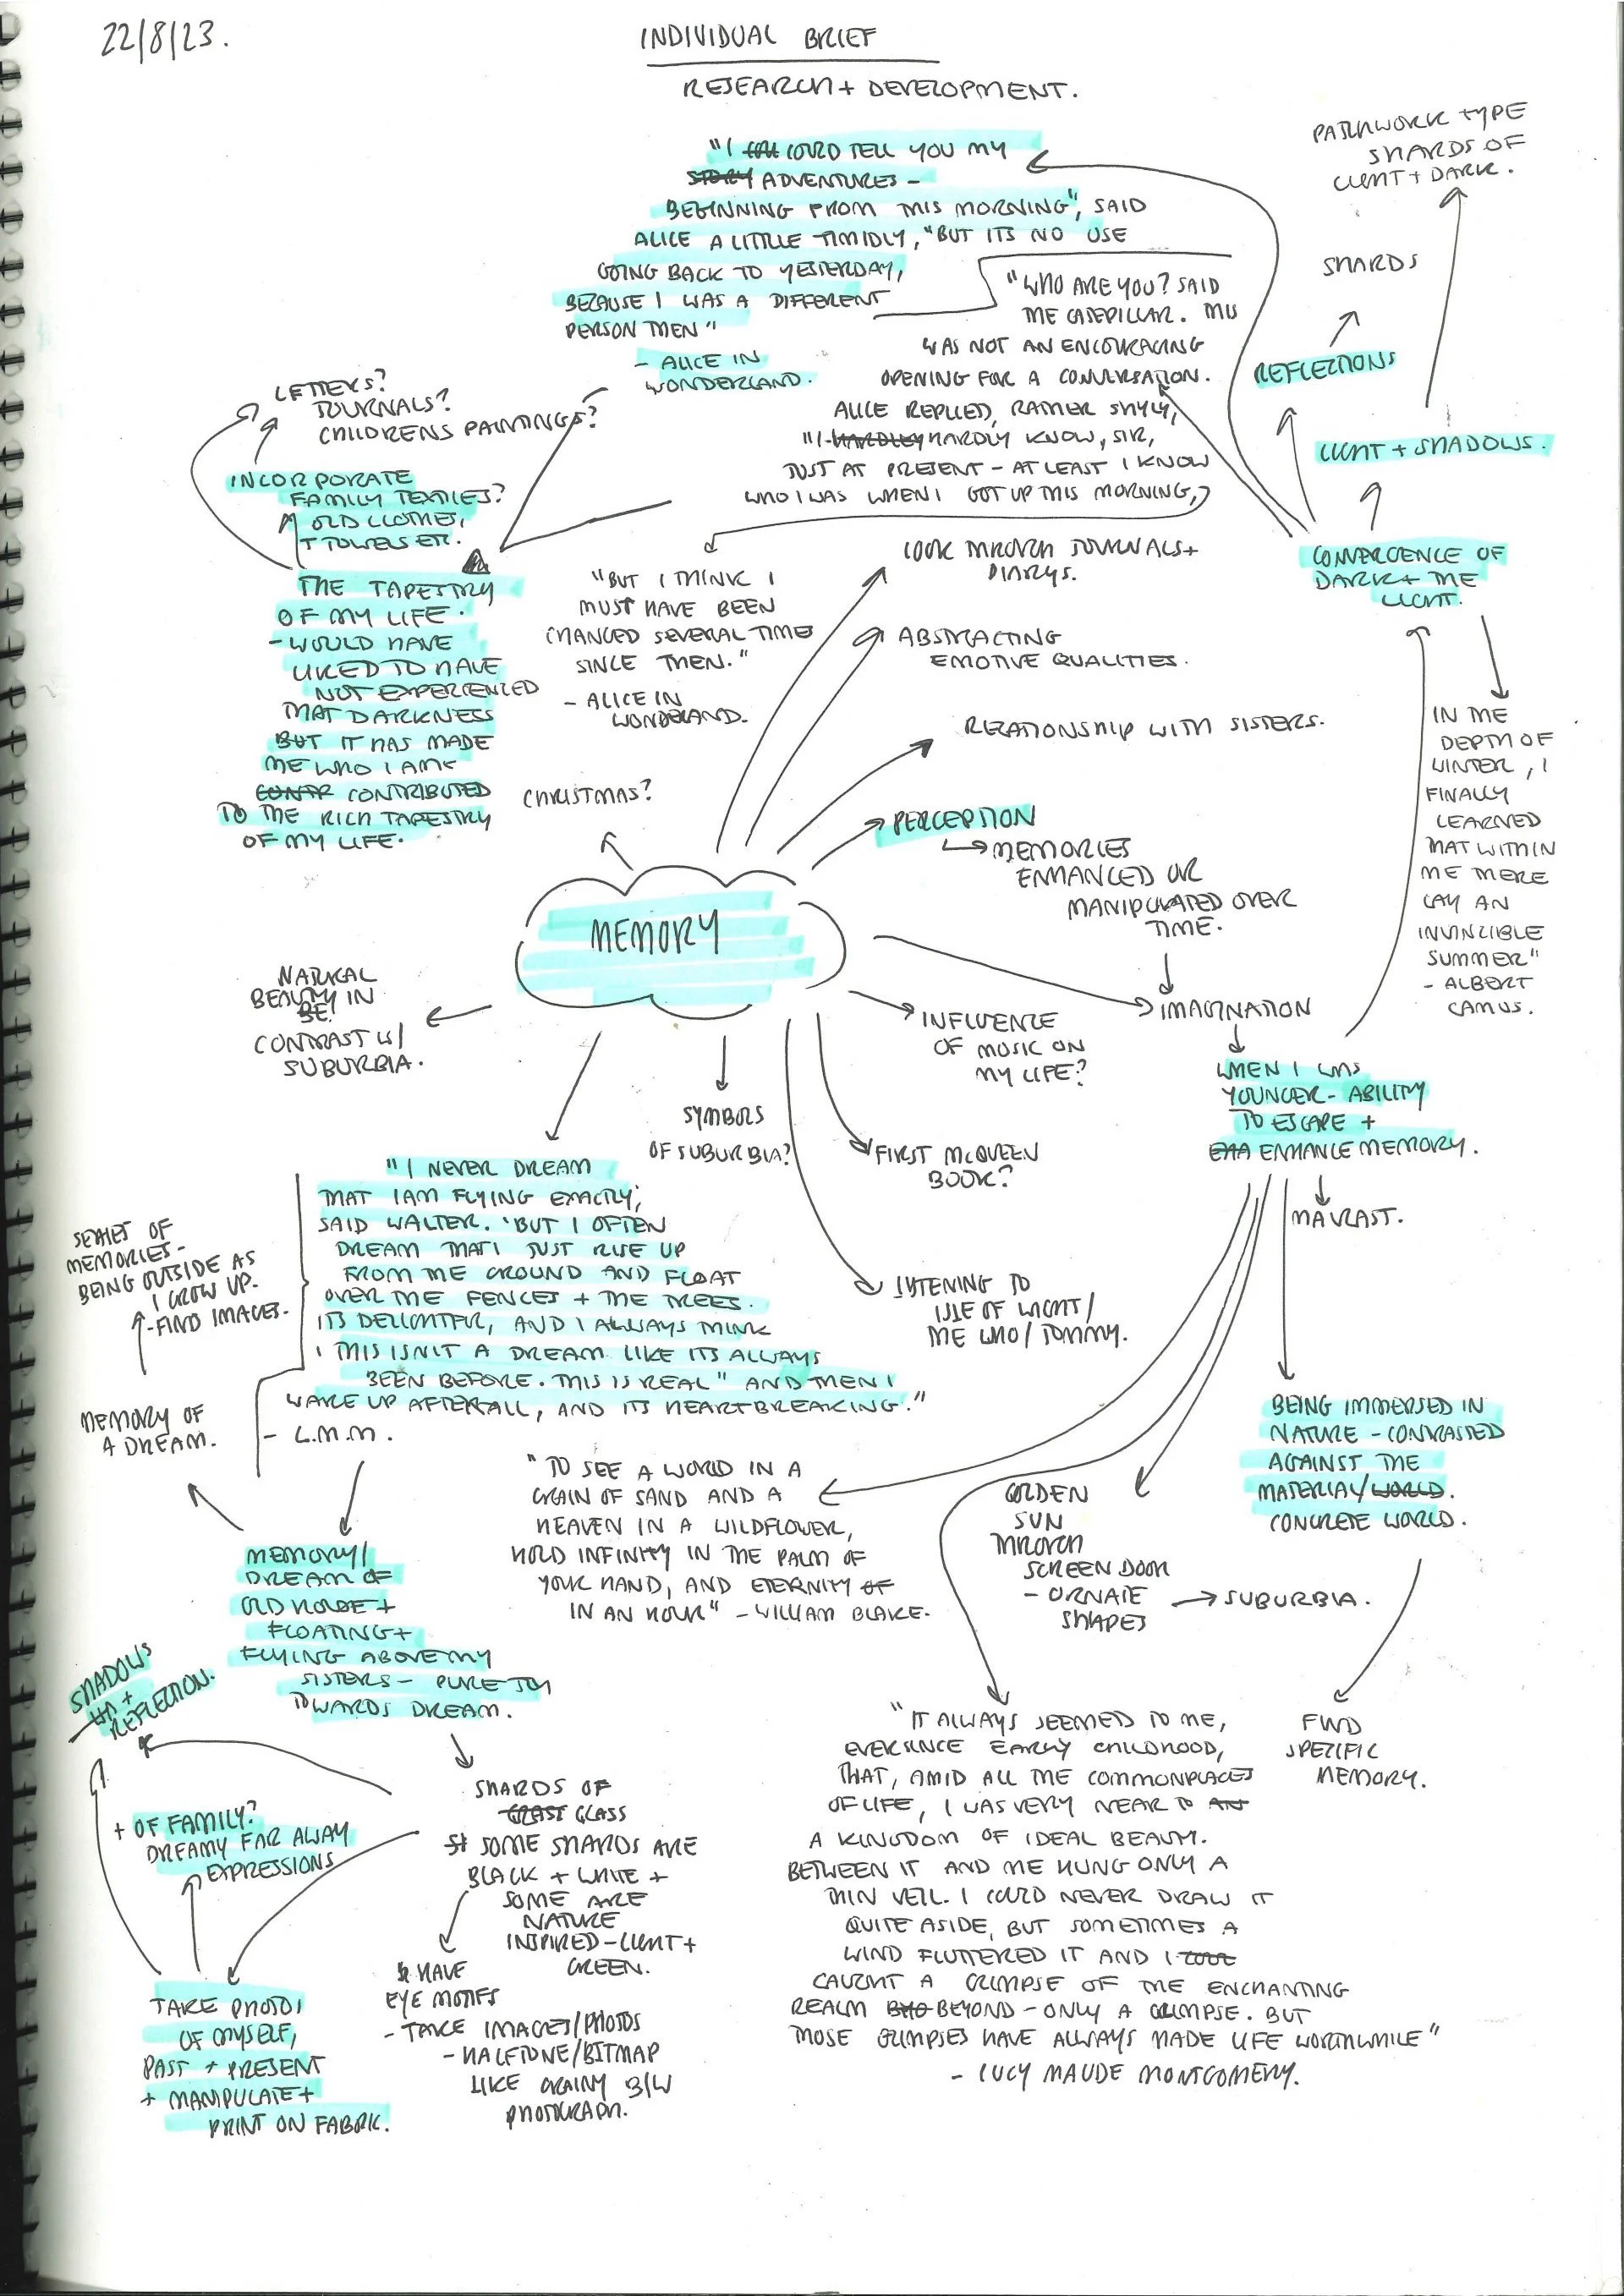 22/8/23.
INDIVIDUAL BRIEF
RESEARCH + DEVELOPMENT.
"I COULD TELL YOU MY
STORY ADVENTURES -
BEGINNING FROM THIS MORNING", SAID
ALICE A LITTLE TIMIDLY, "BUT ITS NO USE
GOING BACK TO YESTERDAY,
BECAUSE I WAS A DIFFERENT
PERSON THEN"
- ALICE IN
WONDERLAND.
"WHO ARE YOU? SAID
THE CATEPILLAR. THIS
WAS NOT AN ENCOURAGING
OPENING FOR A CONVERSATION.
ALICE REPLIED, RATHER SHYLY,
"I HARDLEY HARDLY KNOW, SIR,
JUST AT PRESENT - AT LEAST I KNOW
WHO I WAS WHEN I GOT UP THIS MORNING,
"BUT I THINK I
MUST HAVE BEEN
CHANGED SEVERAL TIME
SINCE THEN."
- ALICE IN
WONDERLAND.
PATCHWORK TYPE
SHARDS OF
LIGHT + DARK.
SHARDS
REFLECTIONS
LIGHT + SHADOWS.
CONVERGENCE OF
DARK + THE
LIGHT.
IN THE
DEPTH OF
WINTER, I
FINALLY
LEARNED
THAT WITHIN
ME THERE
LAY AN
INVINCIBLE
SUMMER"
- ALBERT
CAMUS.
LETTERS?
JOURNALS?
CHILDRENS PAINTINGS?
INCORPORATE
FAMILY TEXTILES?
OLD CLOTHES,
TOWELS ETC.
THE TAPESTRY
OF MY LIFE.
- WOULD HAVE
LIKED TO HAVE
NOT EXPERIENCED
THAT DARKNESS
BUT IT HAS MADE
ME WHO I AM +
CONTR CONTRIBUTED
TO THE RICH TAPESTRY
OF MY LIFE.
LOOK THROUGH JOURNALS +
DIARYS.
ABSTRACTING
EMOTIVE QUALITIES.
RELATIONSHIP WITH SISTERS.
CHRISTMAS?
PERCEPTION
MEMORIES
ENHANCED OR
MANIPULATED OVER
TIME.
MEMORY
IMAGINATION
NATURAL
BEAUTY IN
BE!
CONTRAST W/
SUBURBIA.
INFLUENCE
OF MUSIC ON
MY LIFE?
WHEN I WAS
YOUNGER - ABILITY
TO ESCAPE +
ENHANCE MEMORY.
SYMBOLS
OF SUBURBIA?
FIRST McQUEEN
BOOK?
LISTENING TO
ISLE OF WIGHT/
THE WHO/TOMMY.
"I NEVER DREAM
THAT I AM FLYING EXACTLY,
SAID WALTER. 'BUT I OFTEN
DREAM THAT I JUST RISE UP
FROM THE GROUND AND FLOAT
OVER THE FENCES + THE TREES.
ITS DELIGHTFUL, AND I ALWAYS THINK
THIS ISN'T A DREAM LIKE ITS ALWAYS
BEEN BEFORE. THIS IS REAL" AND THEN I
WAKE UP AFTERALL, AND ITS HEARTBREAKING."
- L.M.M.
SERIES OF
MEMORIES -
BEING OUTSIDE AS
I GROW UP.
- FIND IMAGES.
MEMORY OF
A DREAM.
MEMORY/
DREAM OF
OLD HOUSE +
FLOATING +
FLYING ABOVE MY
SISTERS - PURE JOY
TOWARDS DREAM.
SHADOWS
+
REFLECTION.
"TO SEE A WORLD IN A
GRAIN OF SAND AND A
HEAVEN IN A WILDFLOWER,
HOLD INFINITY IN THE PALM OF
YOUR HAND, AND ETERNITY OF
IN AN HOUR" - WILLIAM BLAKE.
GOLDEN
SUN
THROUGH
SCREEN DOOR
- ORNATE
SHAPES
SUBURBIA.
BEING IMMERSED IN
NATURE - CONTRASTED
AGAINST THE
MATERIAL/WORLD.
CONCRETE WORLD.
FIND
SPECIFIC
MEMORY.
SHARDS OF
GLASS
SOME SHARDS ARE
BLACK + WHITE +
SOME ARE
NATURE
INSPIRED - LIGHT +
GREEN.
HAVE
EYE MOTIFS
- TAKE IMAGES/PHOTOS
- HALFTONE/BITMAP
LIKE GRAINY B/W
PHOTOGRAPH.
+ OF FAMILY?
DREAMY FAR AWAY
EXPRESSIONS
TAKE PHOTOS
OF MYSELF,
PAST + PRESENT
+ MANIPULATE +
PRINT ON FABRIC.
"IT ALWAYS SEEMED TO ME,
EVER SINCE EARLY CHILDHOOD,
THAT, AMID ALL THE COMMONPLACES
OF LIFE, I WAS VERY NEAR TO AN
A KINGDOM OF IDEAL BEAUTY.
BETWEEN IT AND ME HUNG ONLY A
THIN VEIL. I COULD NEVER DRAW IT
QUITE ASIDE, BUT SOMETIMES A
WIND FLUTTERED IT AND I
CAUGHT A GLIMPSE OF THE ENCHANTING
REALM BEYOND - ONLY A GLIMPSE. BUT
THOSE GLIMPSES HAVE ALWAYS MADE LIFE WORTHWHILE"
- LUCY MAUDE MONTGOMERY.